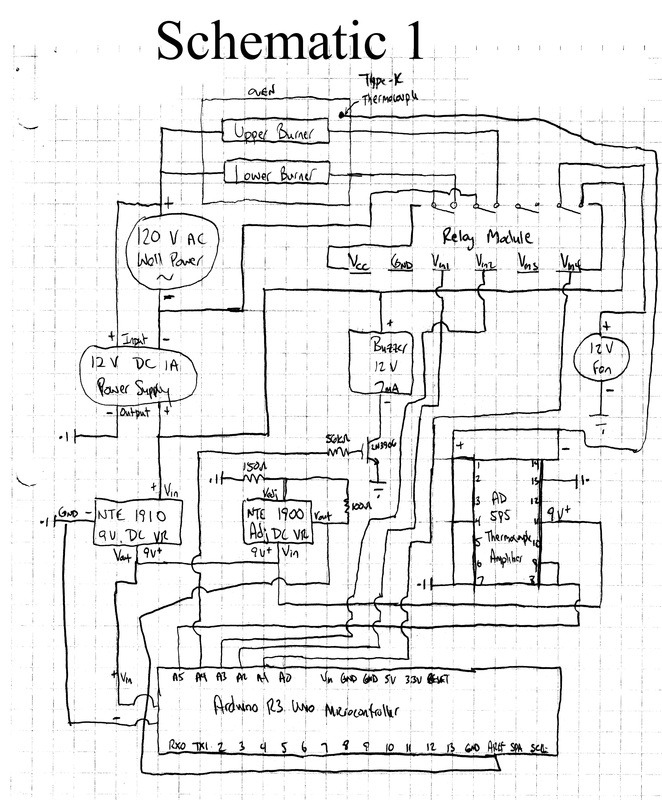 Schematic 1
Type-K
Thermocouple
OVEN
Upper Burner
Lower Burner
+
120 V AC
Wall Power
~
-
Relay Module
Vcc GND Vin1 Vin2 Vin3 Vin4
+ Input -
12V DC 1A
Power Supply
- Output +
+
Buzzer
12 V
7mA
-
+
12 V
Fan
-
56kΩ
2N3906
150Ω
100Ω
+ Vin
GND -
NTE 1910
9V. DC VR
Vout 9V+
Vadj
NTE 1900
Adj DC VR
Vout
9V+ Vin
+ -
1 14
2 13
3 12
4 11
5 10
6 9
7 8
AD
595
Thermocouple
Amplifier
9V+
+ Vin
-
A5 A4 A3 A2 A1 A0 Vin GND GND 5V 3.3V RESET
Arduino R3 Uno Microcontroller
RX0 TX1 2 3 4 5 6 7 8 9 10 11 12 13 GND AREF SDA SCL